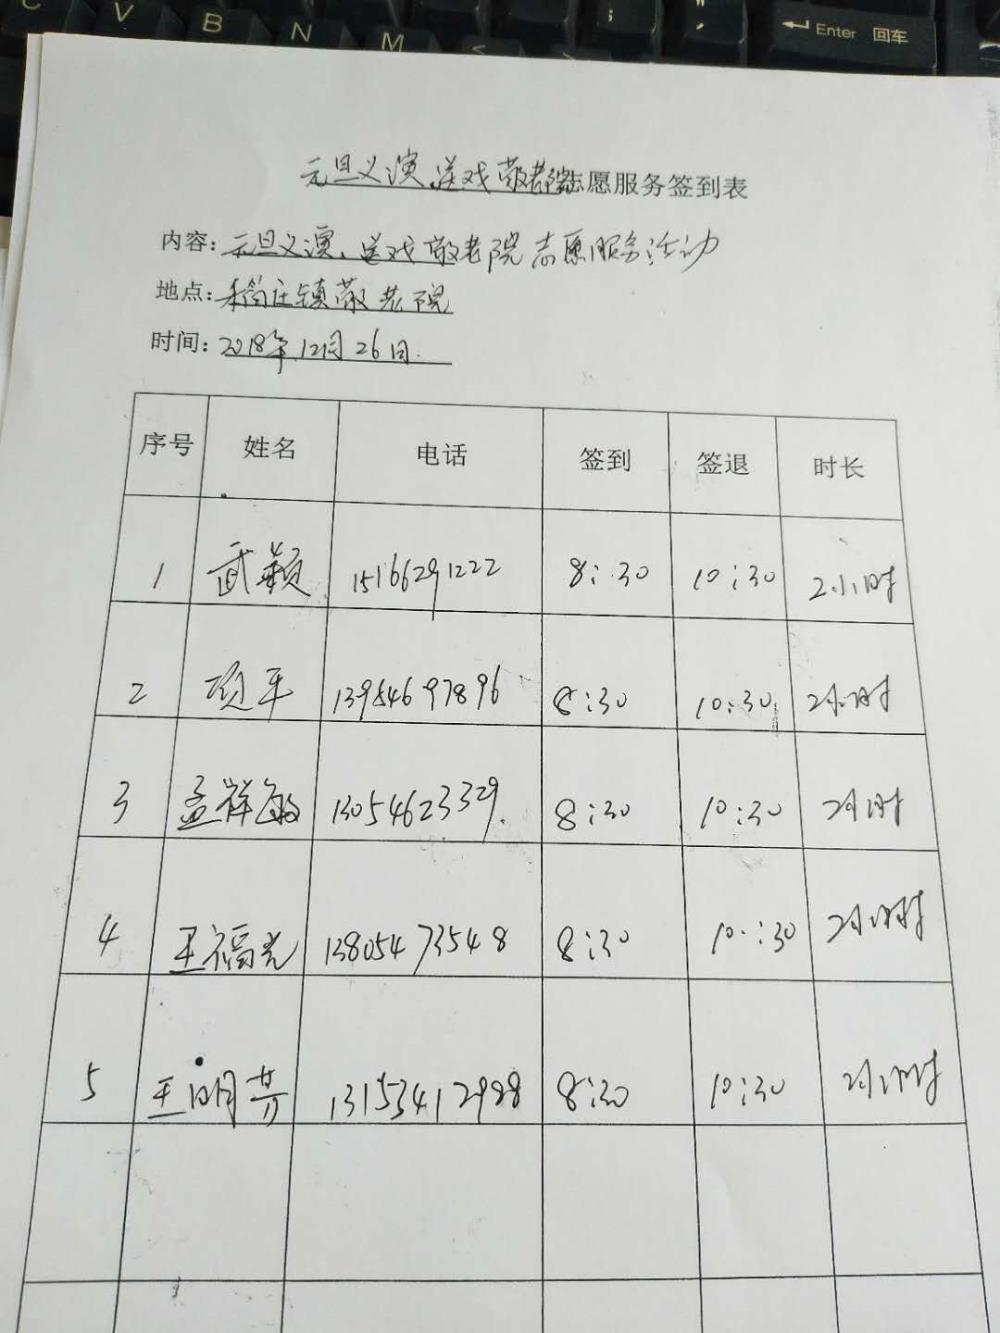 C V B N M < Enter 回车
元旦义演、送戏敬老院志愿服务签到表
内容: 元旦义演、送戏敬老院志愿服务活动
地点: 稻庄镇敬老院
时间: 2018年12月26日.
序号 姓名 电话 签到 签退 时长
1 武颖 15166291222 8:30 10:30 2小时
2 13954697896 8:30 10:30 2小时
3 孟祥敏 13054623329. 8:30 10:30 2小时
4 王福光 13805473548 8:30 10:30 2小时
5 王明芳 13153412988 8:30 10:30 2小时